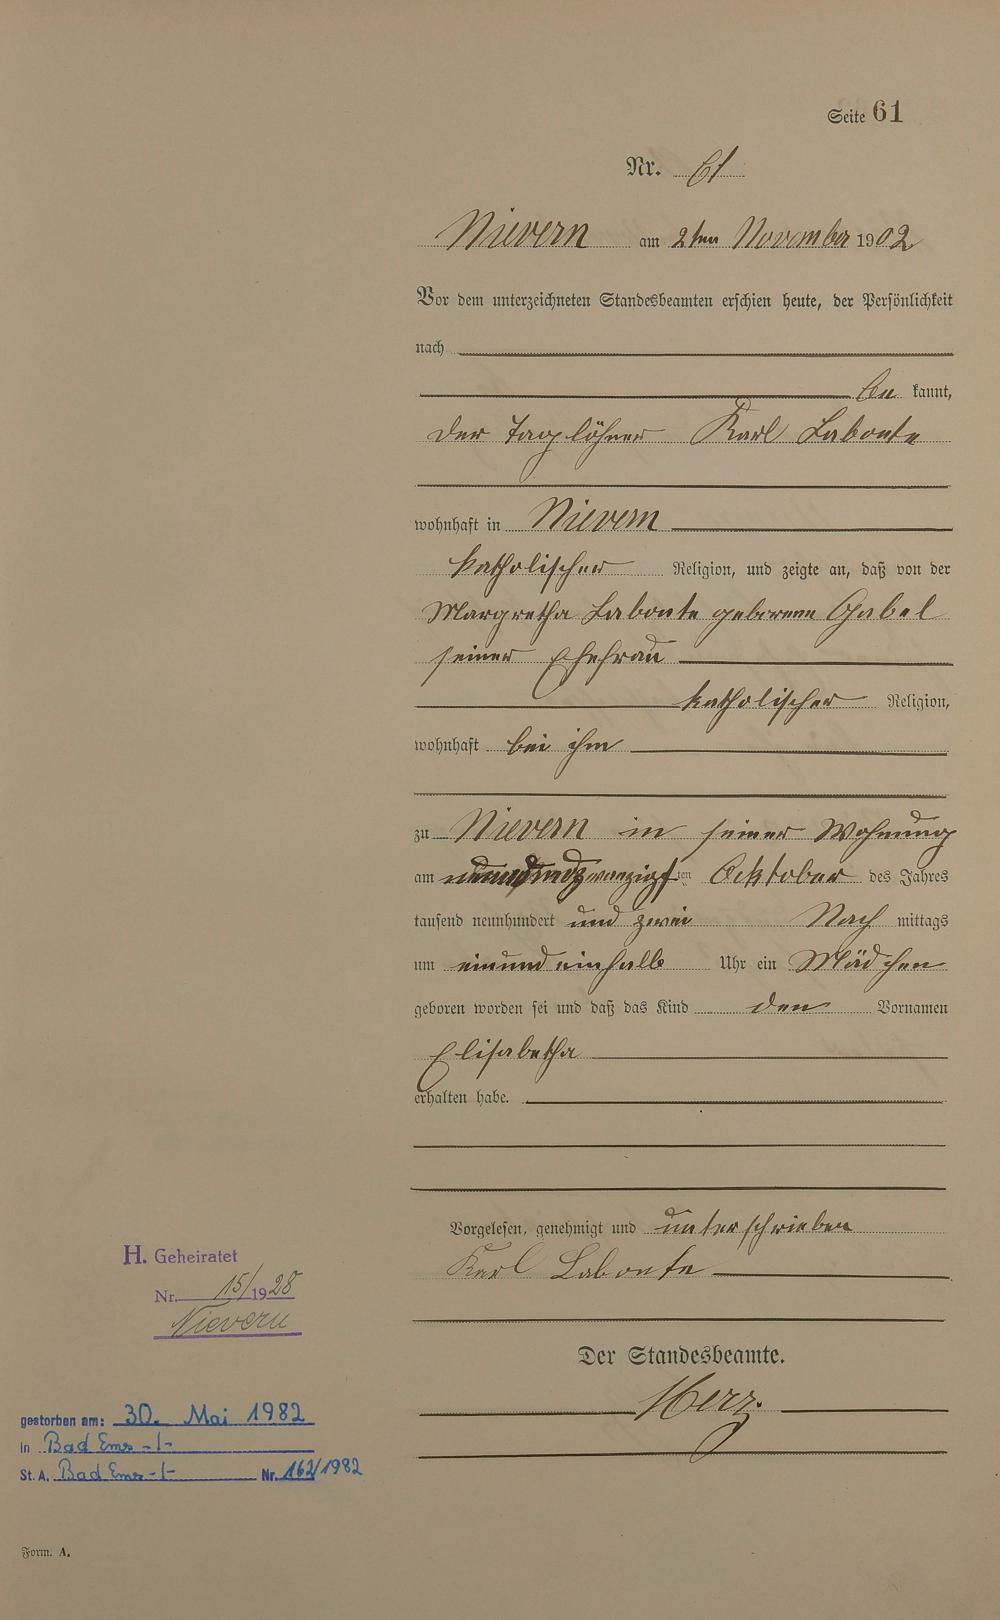 Seite 61
Nr. 61
Nievern am 2ten November 1902
Vor dem unterzeichneten Standesbeamten erschien heute, der Persönlichkeit
nach
be kannt,
der Taglöhner Karl Labonte
wohnhaft in Nievern
katholischer Religion, und zeigte an, daß von der
Margretha Labonte geborenen Gabel
seiner Ehefrau
katholischer Religion,
wohnhaft bei ihm
zu Nievern in seiner Wohnung
am neunundzwanzigsten Ocktober des Jahres
tausend neunhundert und zwei Nach mittags
um einundeinhalb Uhr ein Mädchen
geboren worden sei und daß das Kind den Vornamen
Elisabetha
erhalten habe.
Vorgelesen, genehmigt und unterschrieben
Karl Labonte
Der Standesbeamte.
Herz.
H. Geheiratet
Nr. 15/1928
Nievern
gestorben am: 30. Mai 1982
in Bad Ems -1-
St. A. Bad Ems -1- Nr. 162/1982
Form. A.